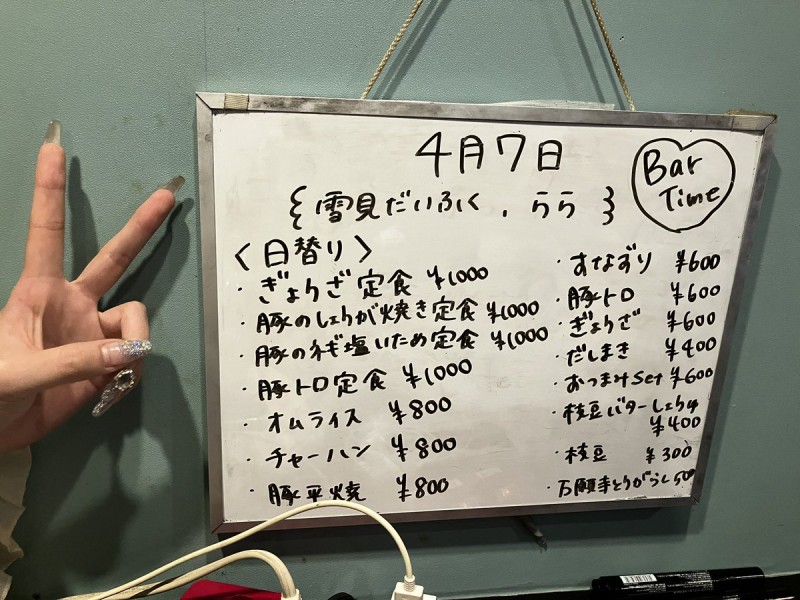 4月7日
Bar
Time
{雪見だいふく、らら}
<日替り>
・ぎょうざ定食 ¥1000
・豚のしょうが焼き定食 ¥1000
・豚のネギ塩いため定食 ¥1000
・豚トロ定食 ¥1000
・オムライス ¥800
・チャーハン ¥800
・豚平焼 ¥800
・すなずり ¥600
・豚トロ ¥600
・ぎょうざ ¥600
・だしまき ¥400
・おつまみset ¥600
・枝豆バターしょうゆ
¥400
・枝豆 ¥300
・万願寺とうがらし500